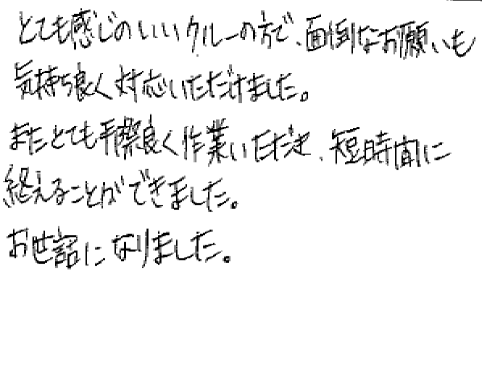 とても感じのいいクルーの方で、面倒なお願いも
気持ち良く対応いただけました。
またとても手際良く作業いただき、短時間に
終えることができました。
お世話になりました。